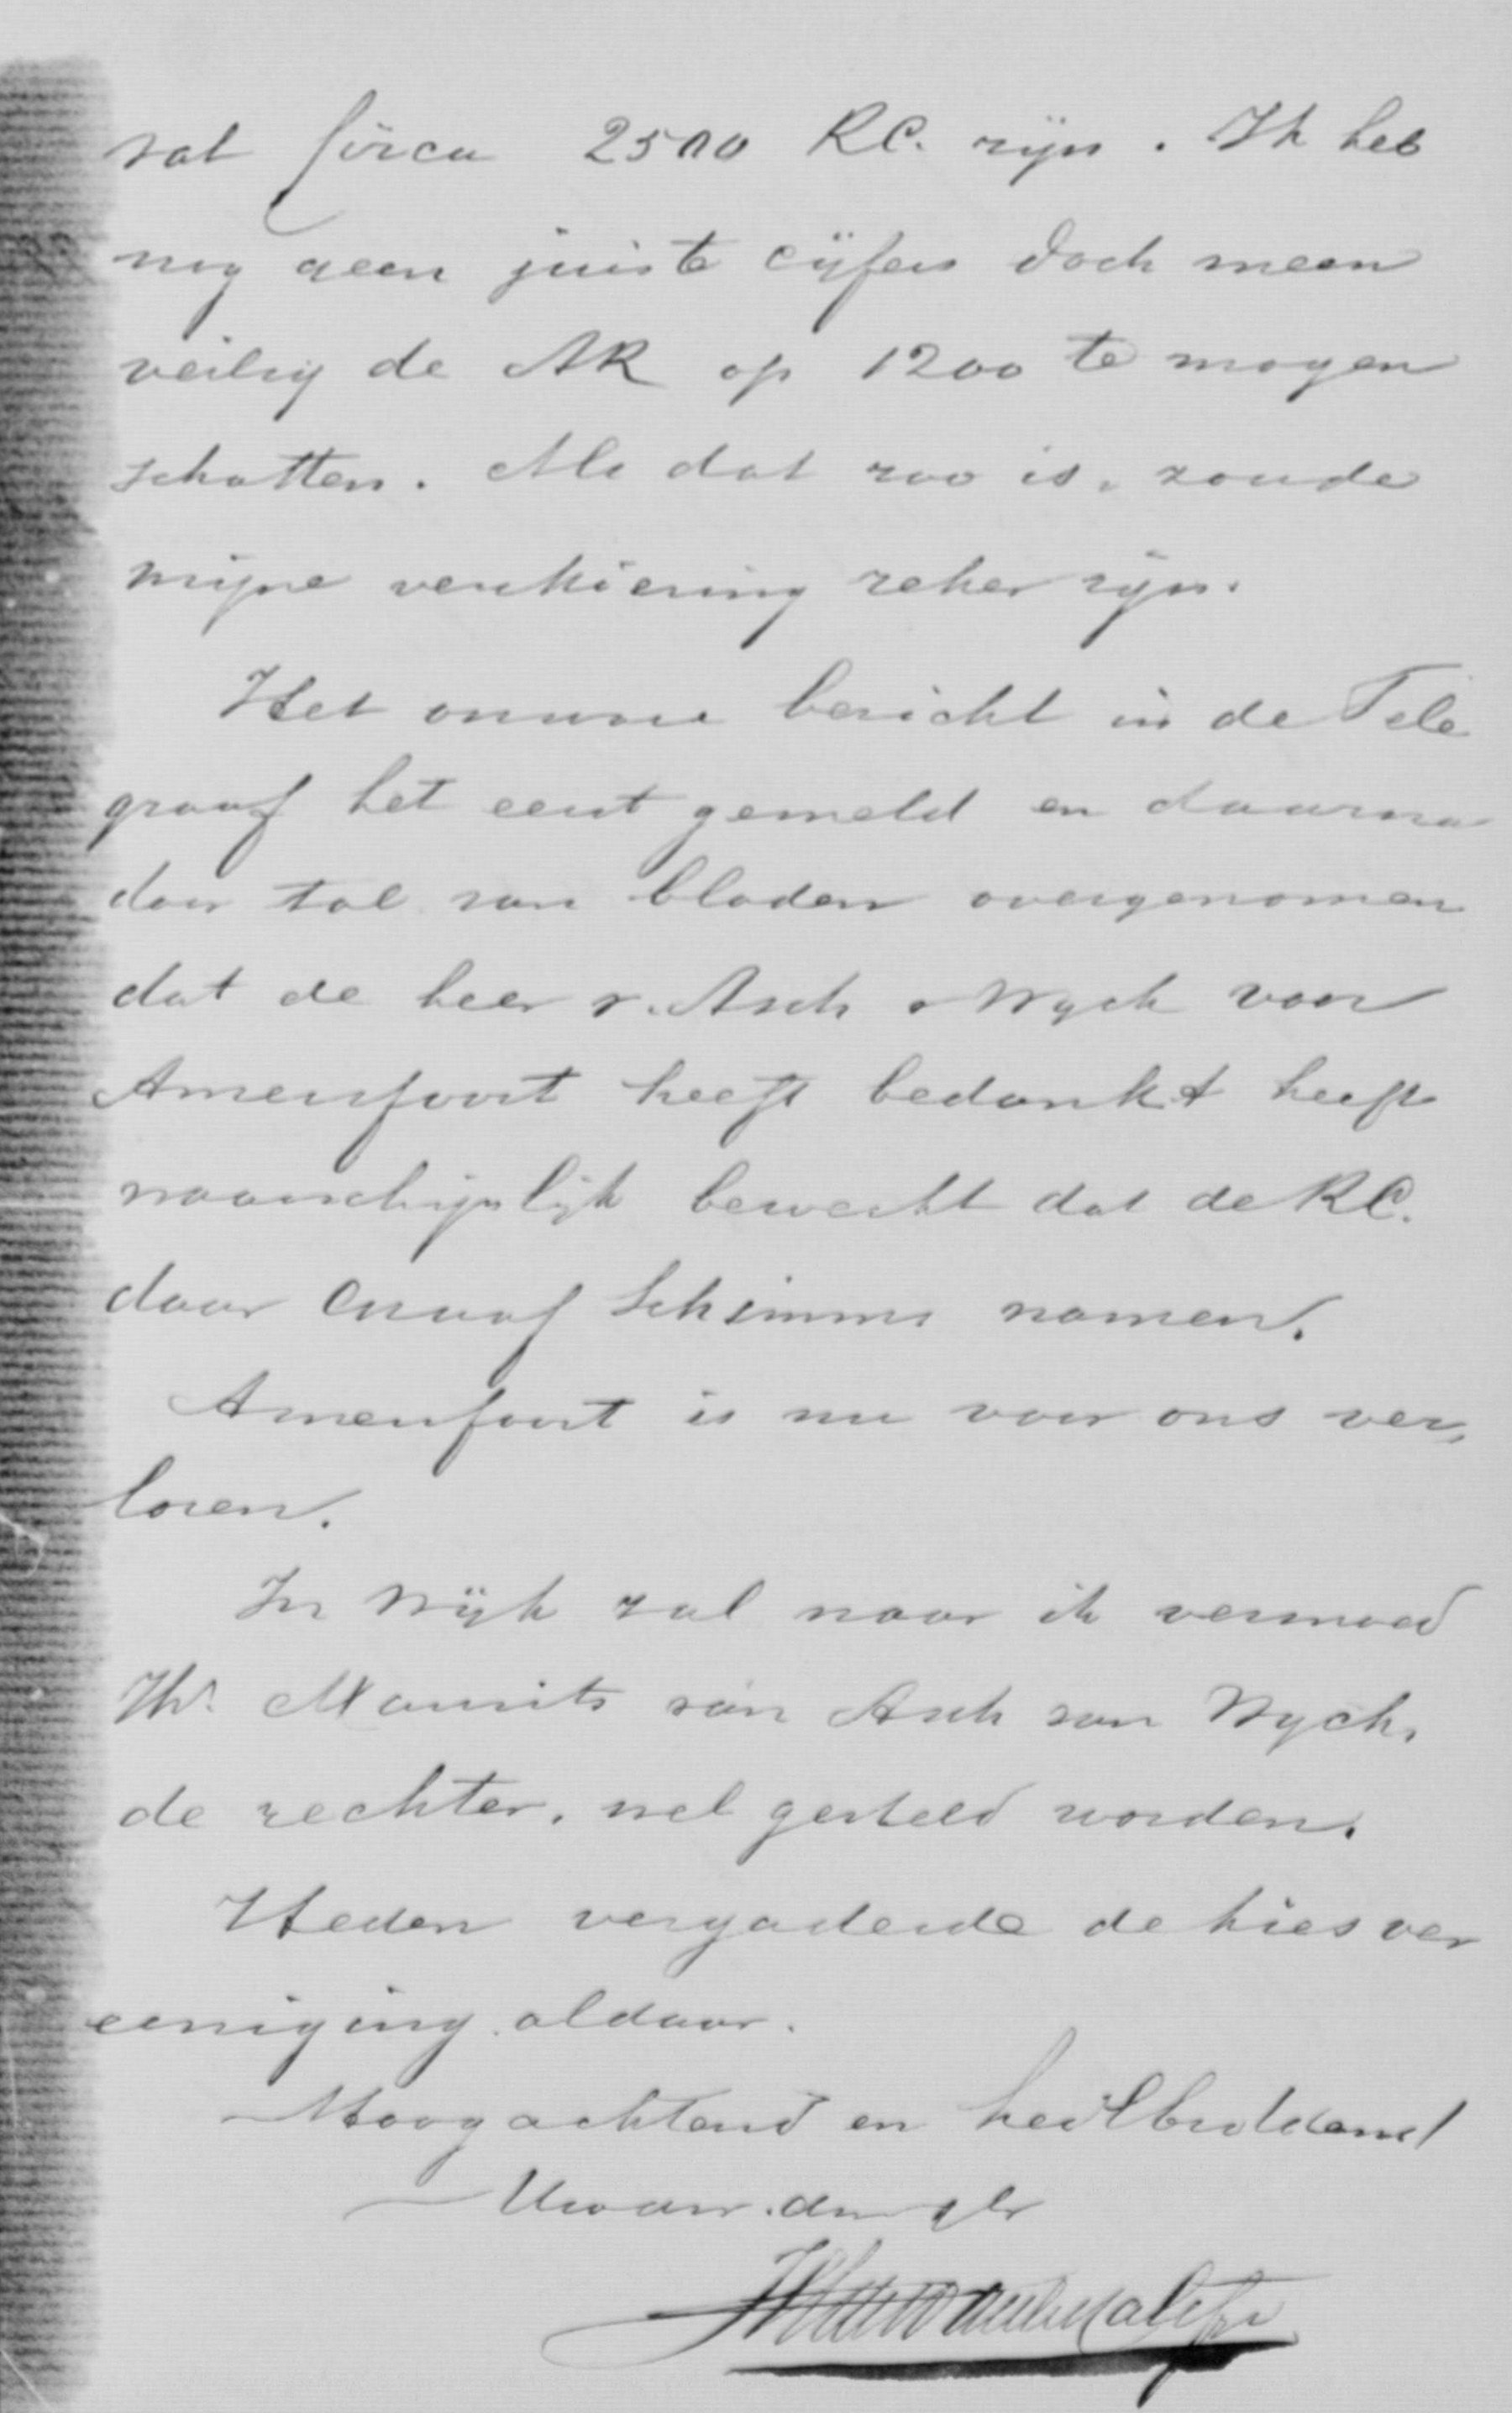 zal circa 2500 RC. zijn. Ik heb
nog geen juiste cijfers doch meen
veilig de AR op 1200 te mogen
schatten. Als dat zoo is, zoude
mijne verkiezing zeker zijn.
Het onware bericht in de Tele
graaf het eerst gemeld en daarna
door tal van bladen overgenomen
dat de heer v. Asch v Wyck voor
Amersfoort heeft bedankt heeft
waarschijnlijk bewerkt dat de RC.
daar en Schimmel namen.
Amersfoort is nu voor ons ver,
loren.
In Wijk zal naar ik vermoed
Jhr. Maurits van Asch van Wyck,
de rechter, wel gesteld worden.
Heden vergaderde de kiesver
eeniging aldaar.
Hoogachtend en heilbiddend
Uw